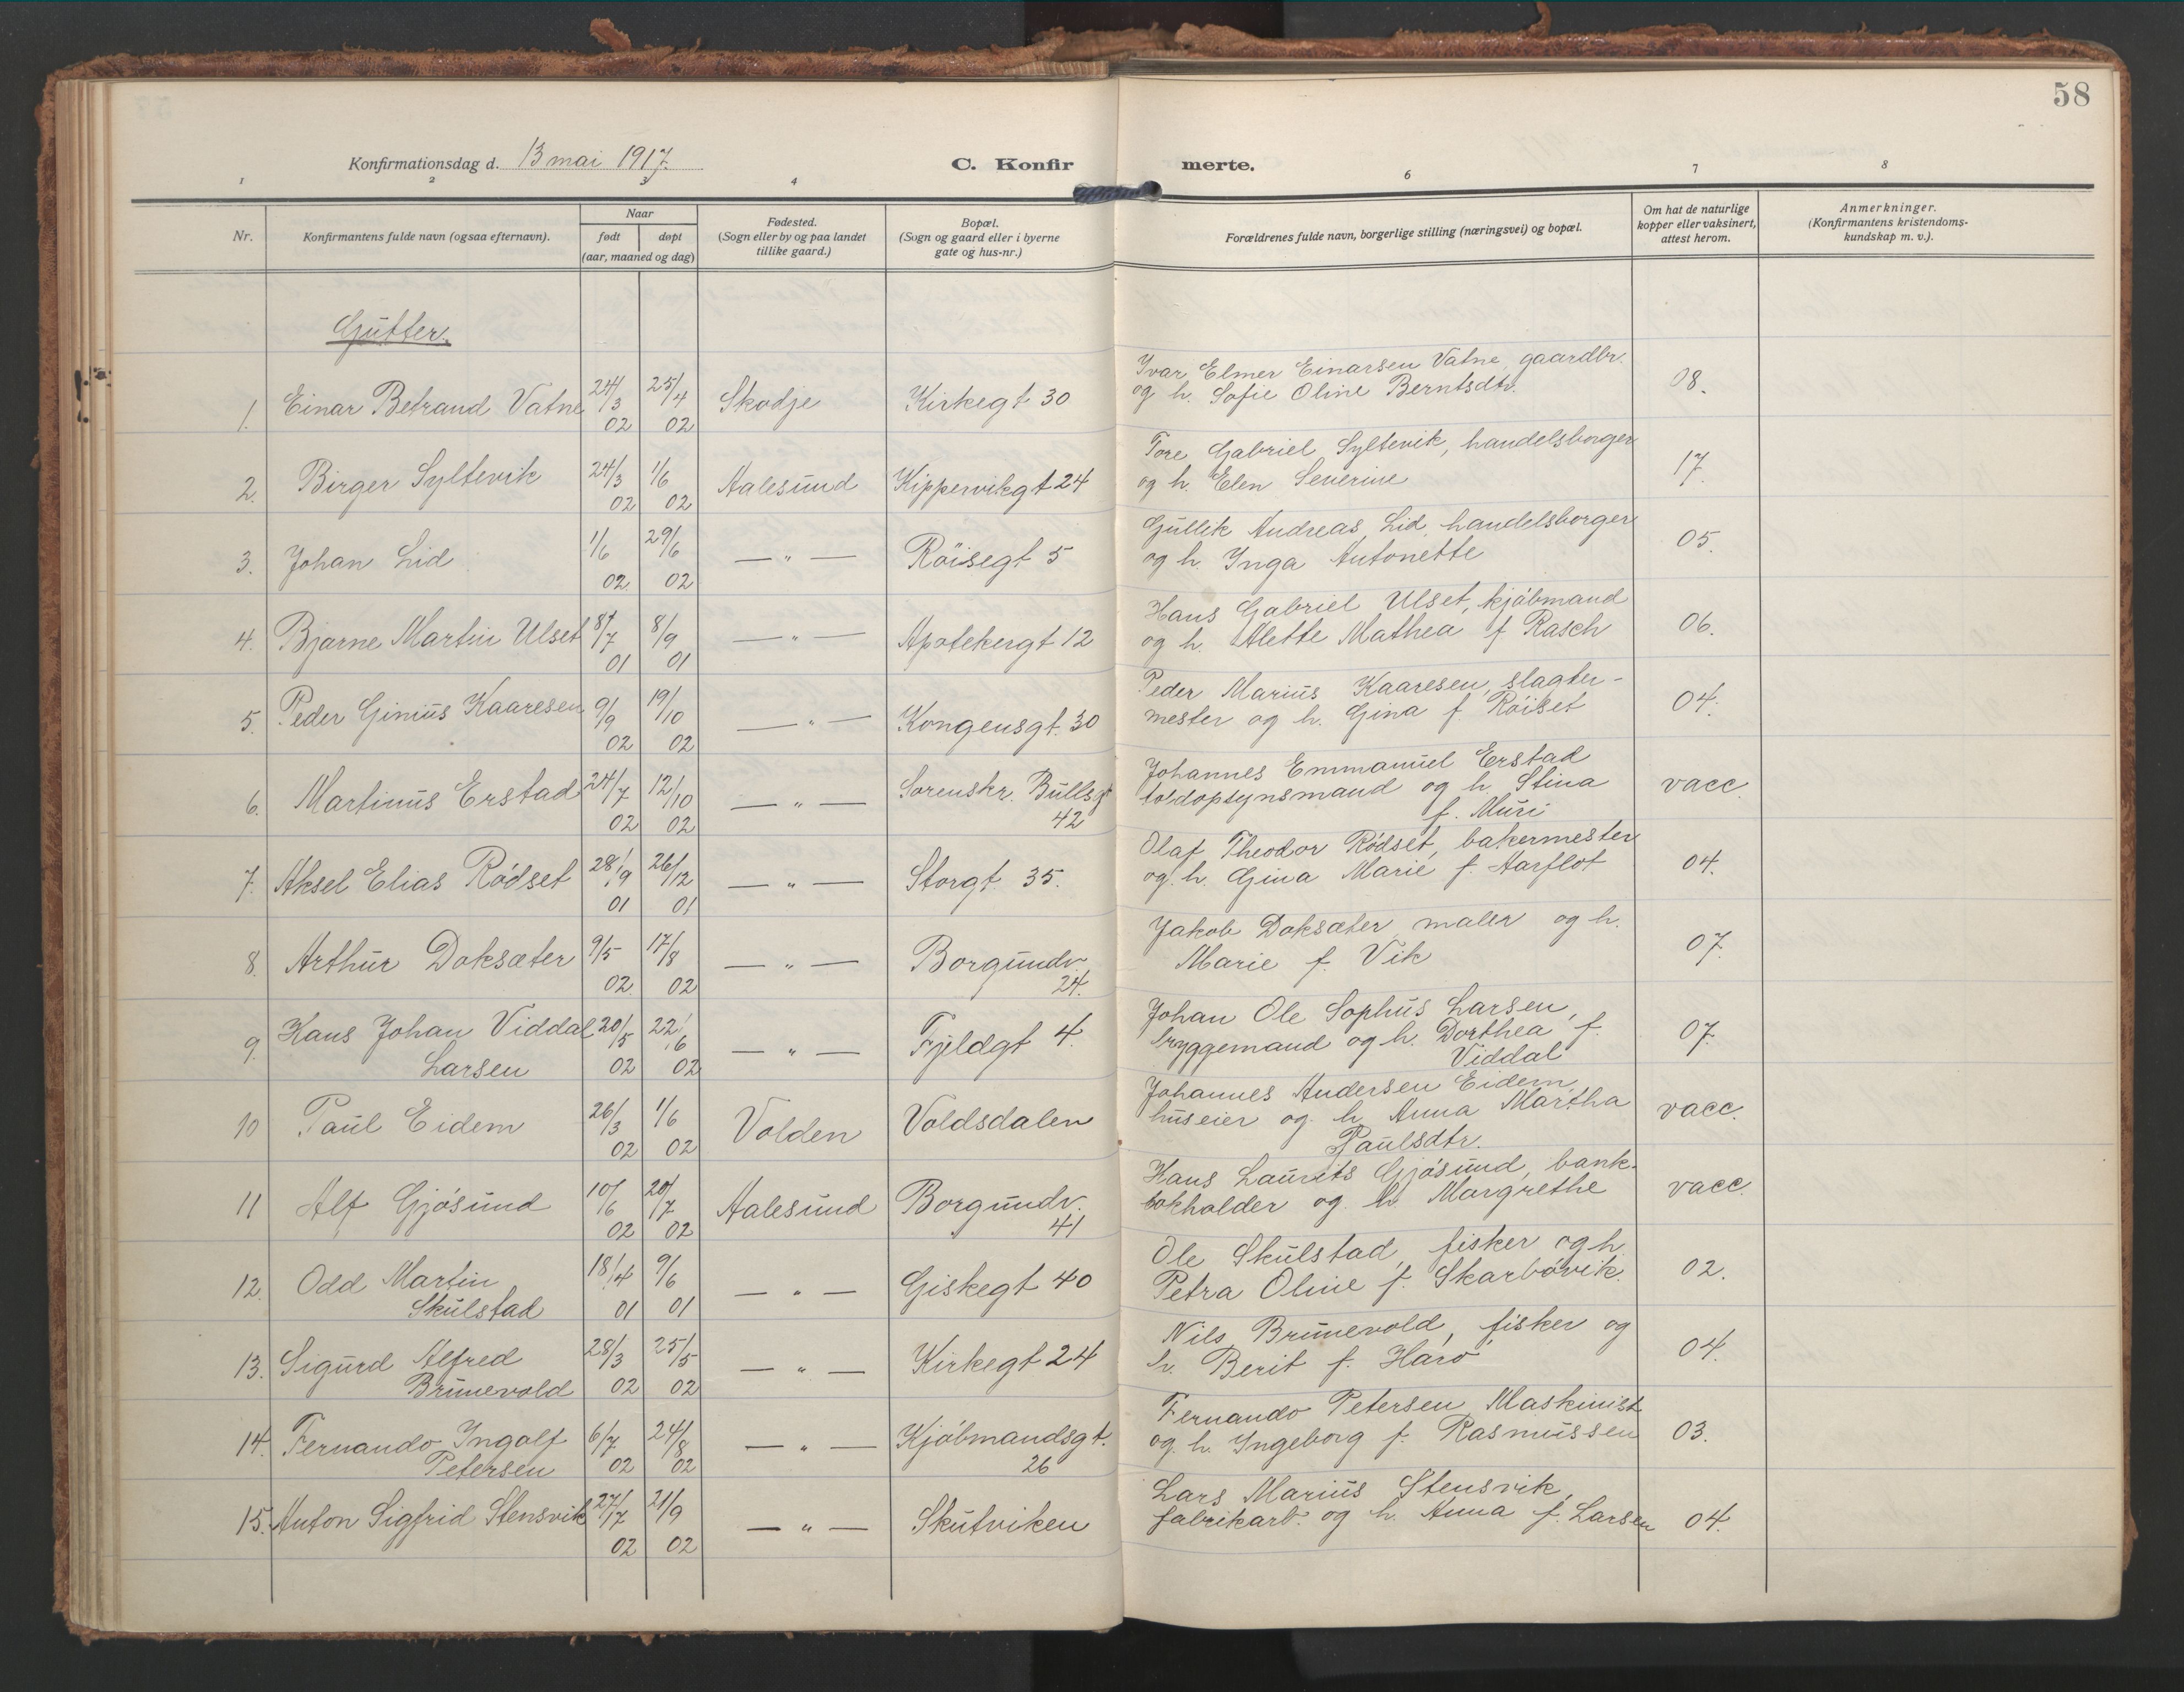 58
Konfirmationsdag d. 13 mai 1917.
C. Konfirmerte.
1 2 3 4 6 7 8
Nr.
Konfirmantens fulde navn (ogsaa efternavn).
Naar
født døpt
(aar, maaned og dag)
Fødested.
(Sogn eller by og paa landet
tillike gaard.)
Bopæl.
(Sogn og gaard eller i byerne
gate og hus-nr.)
Forældrenes fulde navn, borgerlige stilling (næringsvei) og bopæl.
Om hat de naturlige
kopper eller vaksinert,
attest herom.
Anmerkninger.
(Konfirmantens kristendoms-
kundskap m. v.).
Gutter.
1. Einar Betrand Vatne 24/3 02 25/4 02 Skodje Kirkegt 30
Ivar Elmer Einarsen Vatne, gaardbr.
og h. Sofie Oline Berntsdtr. 08.
2. Birger Syltevik 24/3 02 1/6 02 Aalesund Kippervikgt 24
Tore Gabriel Syltevik, handelsborger
og h. Elen Severine 17.
3. Johan Lid 1/6 02 29/6 02 — " — Röisegt 5
Gullik Andreas Lid, handelsborger
og h. Inga Antonette 05.
4. Bjarne Martin Ulset 8/7 01 8/9 01 — " — Apotekergt 12
Hans Gabriel Ulset, kjöbmand
og h. Alette Mathea f Rasch 06.
5. Peder Ginius Kaaresen 9/9 02 19/10 02 — " — Kongensgt. 30
Peder Marius Kaaresen, slagter-
mester og h. Gina f. Röiset 04.
6. Martinus Erstad 24/7 02 12/10 02 — " — Sorenskr. Bullsgt
42
Johannes Emmanuel Erstad
toldopsynsmand og h. Stina
f. Muri vacc.
7. Aksel Elias Rödset 28/9 01 26/12 01 — " — Storgt. 35.
Olaf Theodor Rödset, bakermester
og. h. Gina Marie f. Aarflot 04.
8. Arthur Doksæter 9/5 02 17/8 02 — " — Borgundv.
24.
Jakob Doksæter, maler og h.
Marie f. Vik 07.
9. Hans Johan Viddal
Larsen 20/5 02 22/6 02 — " — Fjeldgt 4.
Johan Ole Sophus Larsen,
bryggemand og h. Dorthea f.
Viddal 07.
10 Paul Eidem 26/3 02 1/6 02 Volden Voldsdalen
Johannes Andersen Eidem,
huseier og h. Anna Martha
Paulsdtr. vacc.
11 Alf Gjösund 10/6 02 20/7 02 Aalesund Borgundv.
41
Hans Laurits Gjösund, bank-
bokholder og h. Margrethe vacc.
12. Odd Martin
Skulstad 18/4 01 9/6 01 — " — Giskegt 40
Ole Skulstad, fisker og h.
Petra Oline f. Skarbövik. 02.
13. Sigurd Alfred
Brunevold 28/3 02 25/5 02 — " — Kirkegt 24
Nils Brunevold, fisker og
h. Berit f. Harö 04.
14. Fernando Ingolf
Petersen 6/7 02 24/8 02 — " — Kjöbmandsgt.
26
Fernando Petersen, Maskinist
og. h. Ingeborg f. Rasmussen 03.
15. Anton Sigfrid Stensvik 27/7 02 21/9 02 — " — Skutviken
Lars Marius Stensvik,
fabrikarb. og h. Anna f. Larsen 04.